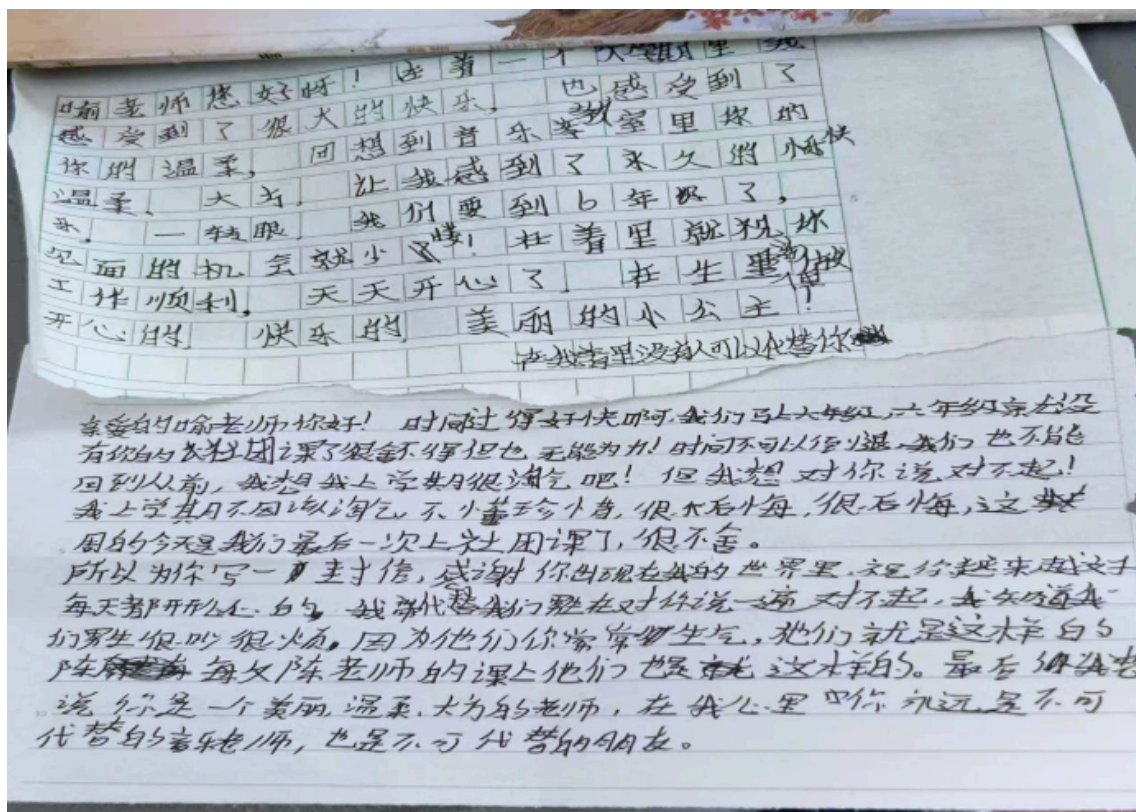 喻老师您好呀！在着一个大学期里我
感受到了很大的快乐，也感受到了
你的温柔，回想到音乐教室里你的
温柔、大方，让我感到了永久的愉快
乐，一转眼，我们要到6年级了，
见面的机会就少喽！在着里就祝你
工作顺利，天天开心了，在生里
开心的，快乐的，美丽的小公主！
没有人可以代替你
亲爱的喻老师你好！时间过得好快啊，我们马上六年级，六年级就没
有你的社团课了很舍不得但也无能为力！时间不可以倒退，我们也不能
回到从前，我想我上学期很淘气吧！但我想对你说对不起！
我上学期不因该淘气，不懂珍惜，很后悔，很后悔，这
周的今天是我们最后一次上社团课了，很不舍。
所以为你写一封信，感谢你出现在我的世界里，祝你越来越
每天都开开心心的，我代替我们男生对你说一声对不起，我知道我
们男生很吵很烦。因为他们你常常生气，他们就是这样的
陈每次陈老师的课上他们也是这样的。最后
说你是一个美丽、温柔、大方的老师，在我心里你永远是不可
代替的音乐老师，也是不可代替的朋友。